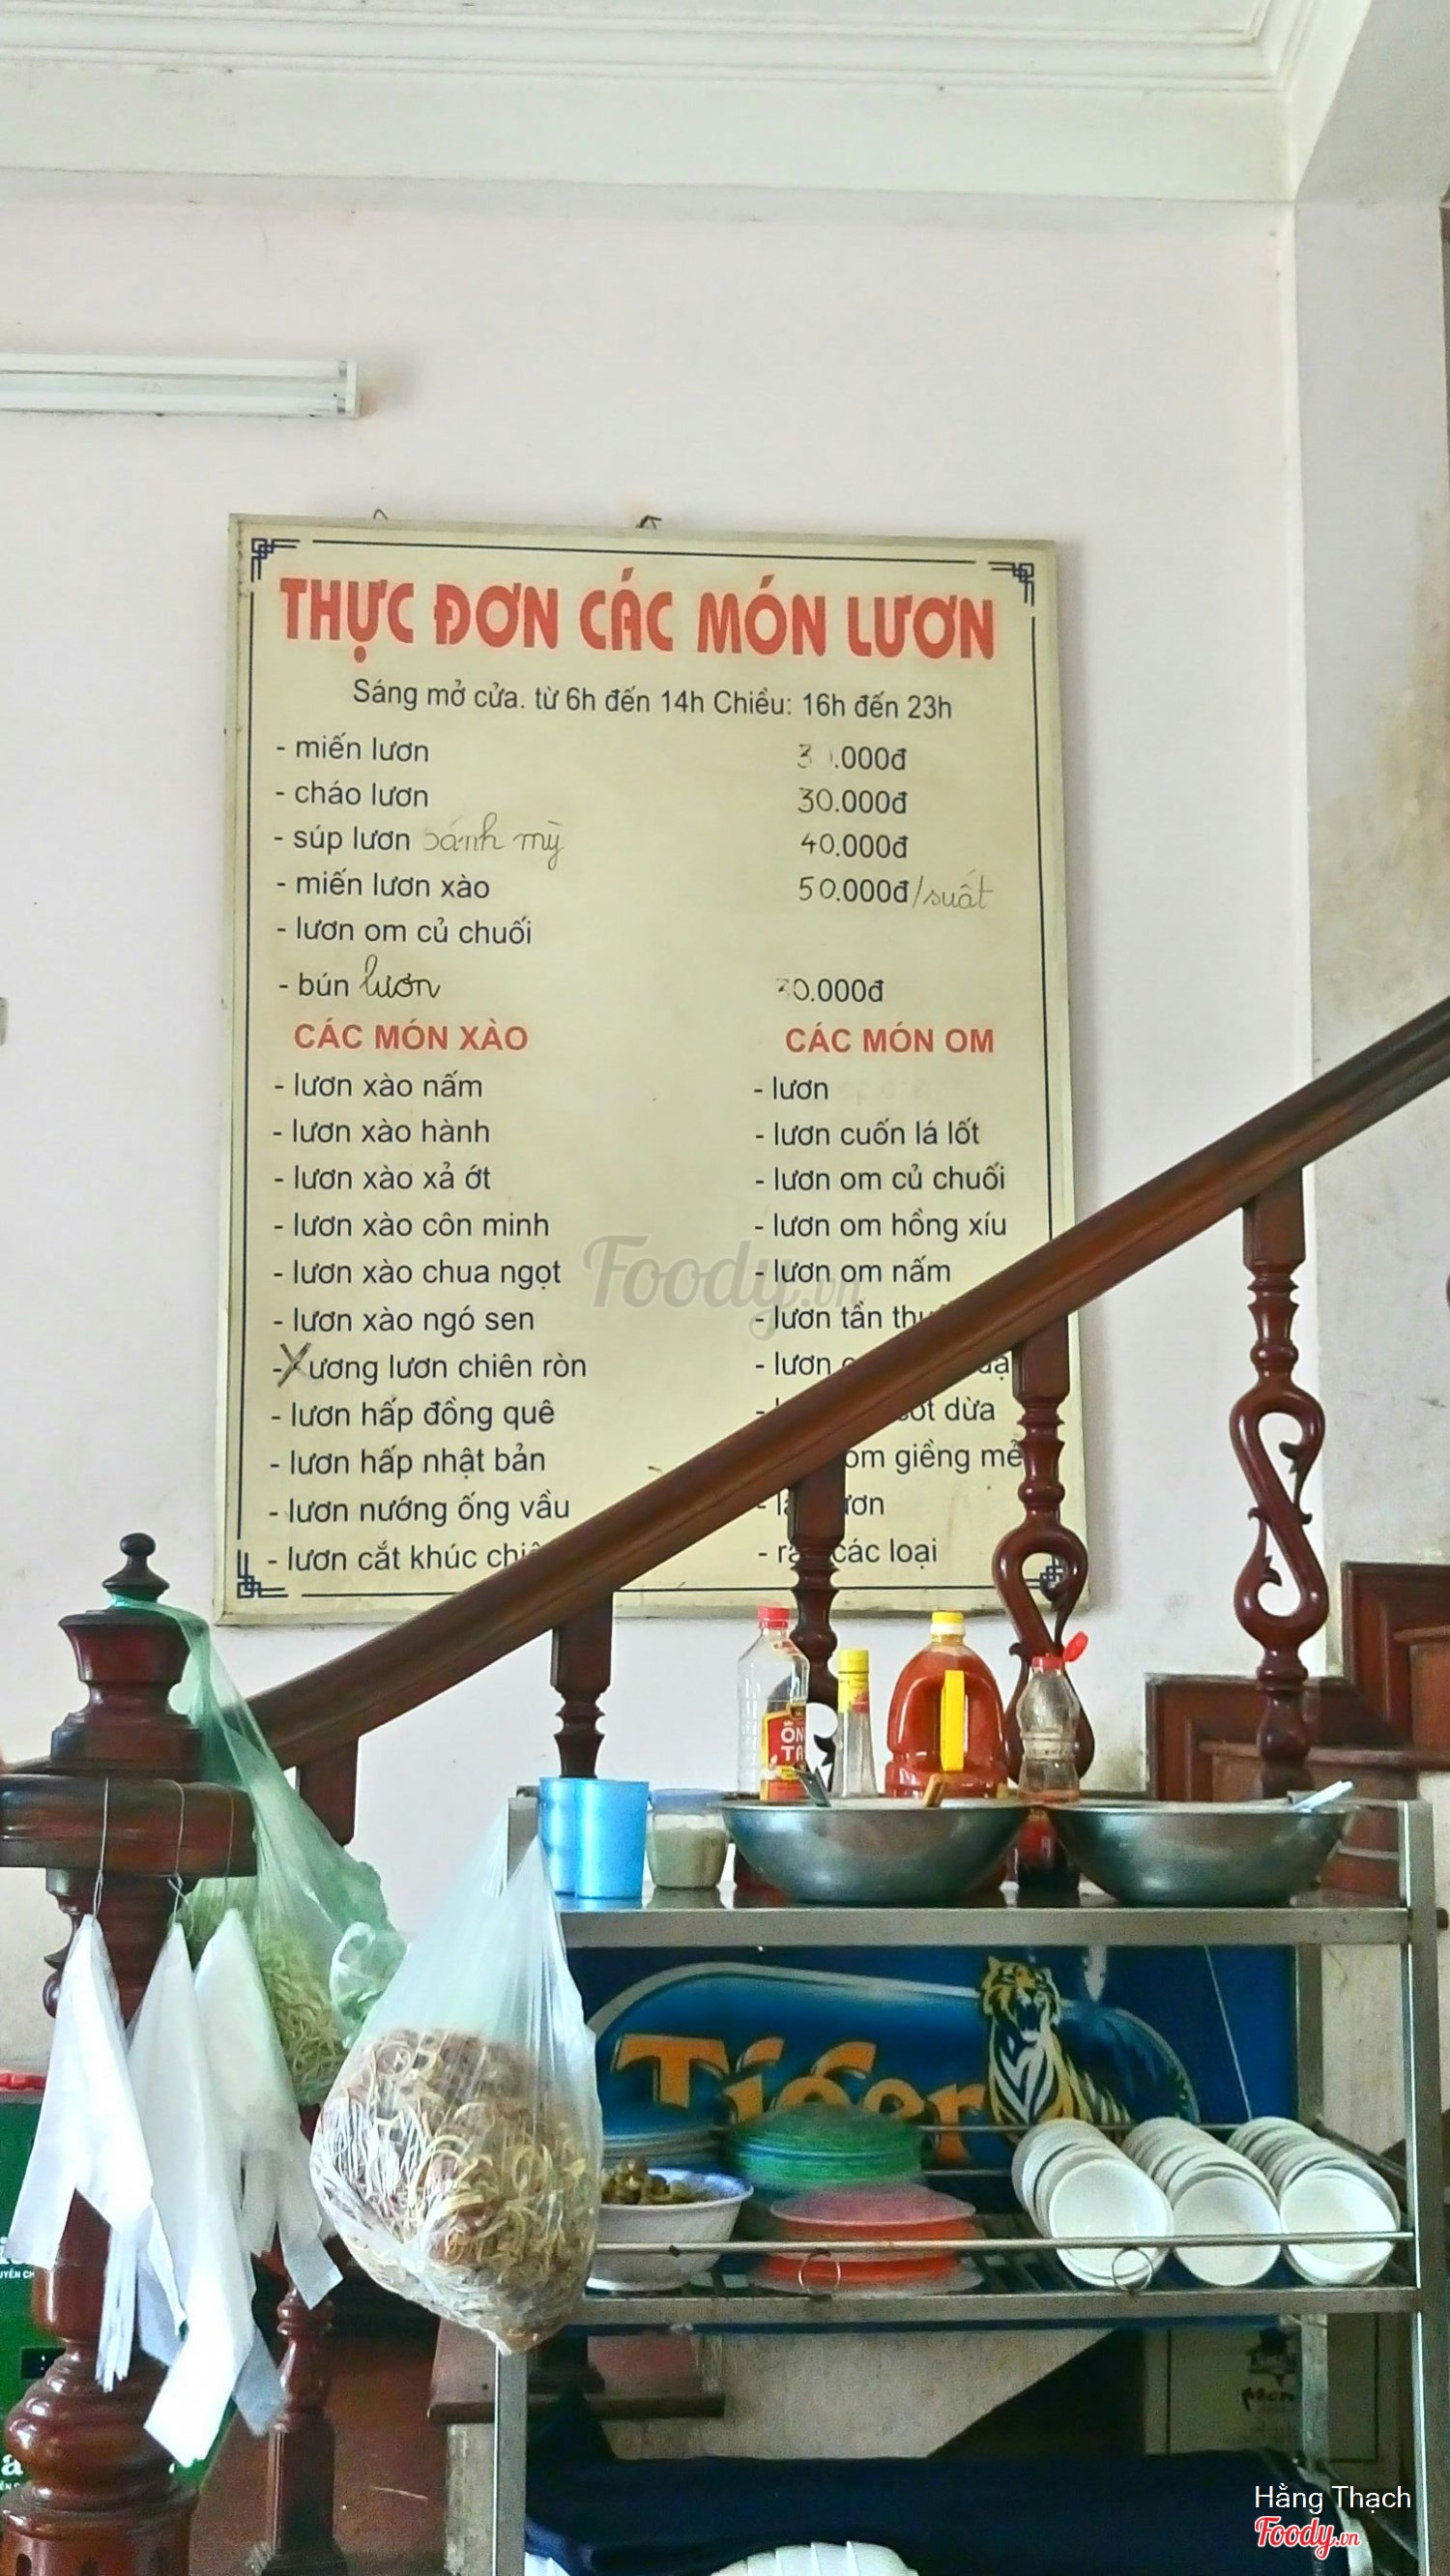 THỰC ĐƠN CÁC MÓN LƯƠN
Sáng mở cửa. từ 6h đến 14h Chiều: 16h đến 23h
- miến lươn .000đ
- cháo lươn 30.000đ
- súp lươn bánh mỳ 40.000đ
- miến lươn xào 50.000đ/suất
- lươn om củ chuối
- bún lươn 30.000đ
CÁC MÓN XÀO
- lươn xào nấm
- lươn xào hành
- lươn xào xả ớt
- lươn xào côn minh
- lươn xào chua ngọt
- lươn xào ngó sen
- Xương lươn chiên ròn
- lươn hấp đồng quê
- lươn hấp nhật bản
- lươn nướng ống vầu
- lươn cắt khúc
CÁC MÓN OM
- lươn
- lươn cuốn lá lốt
- lươn om củ chuối
- lươn om hồng xíu
- lươn om nấm
- lươn tần
- lươn
dừa
om giềng mẻ
- các loại
Foody.vn
Tiger
Hằng Thạch
Foody.vn